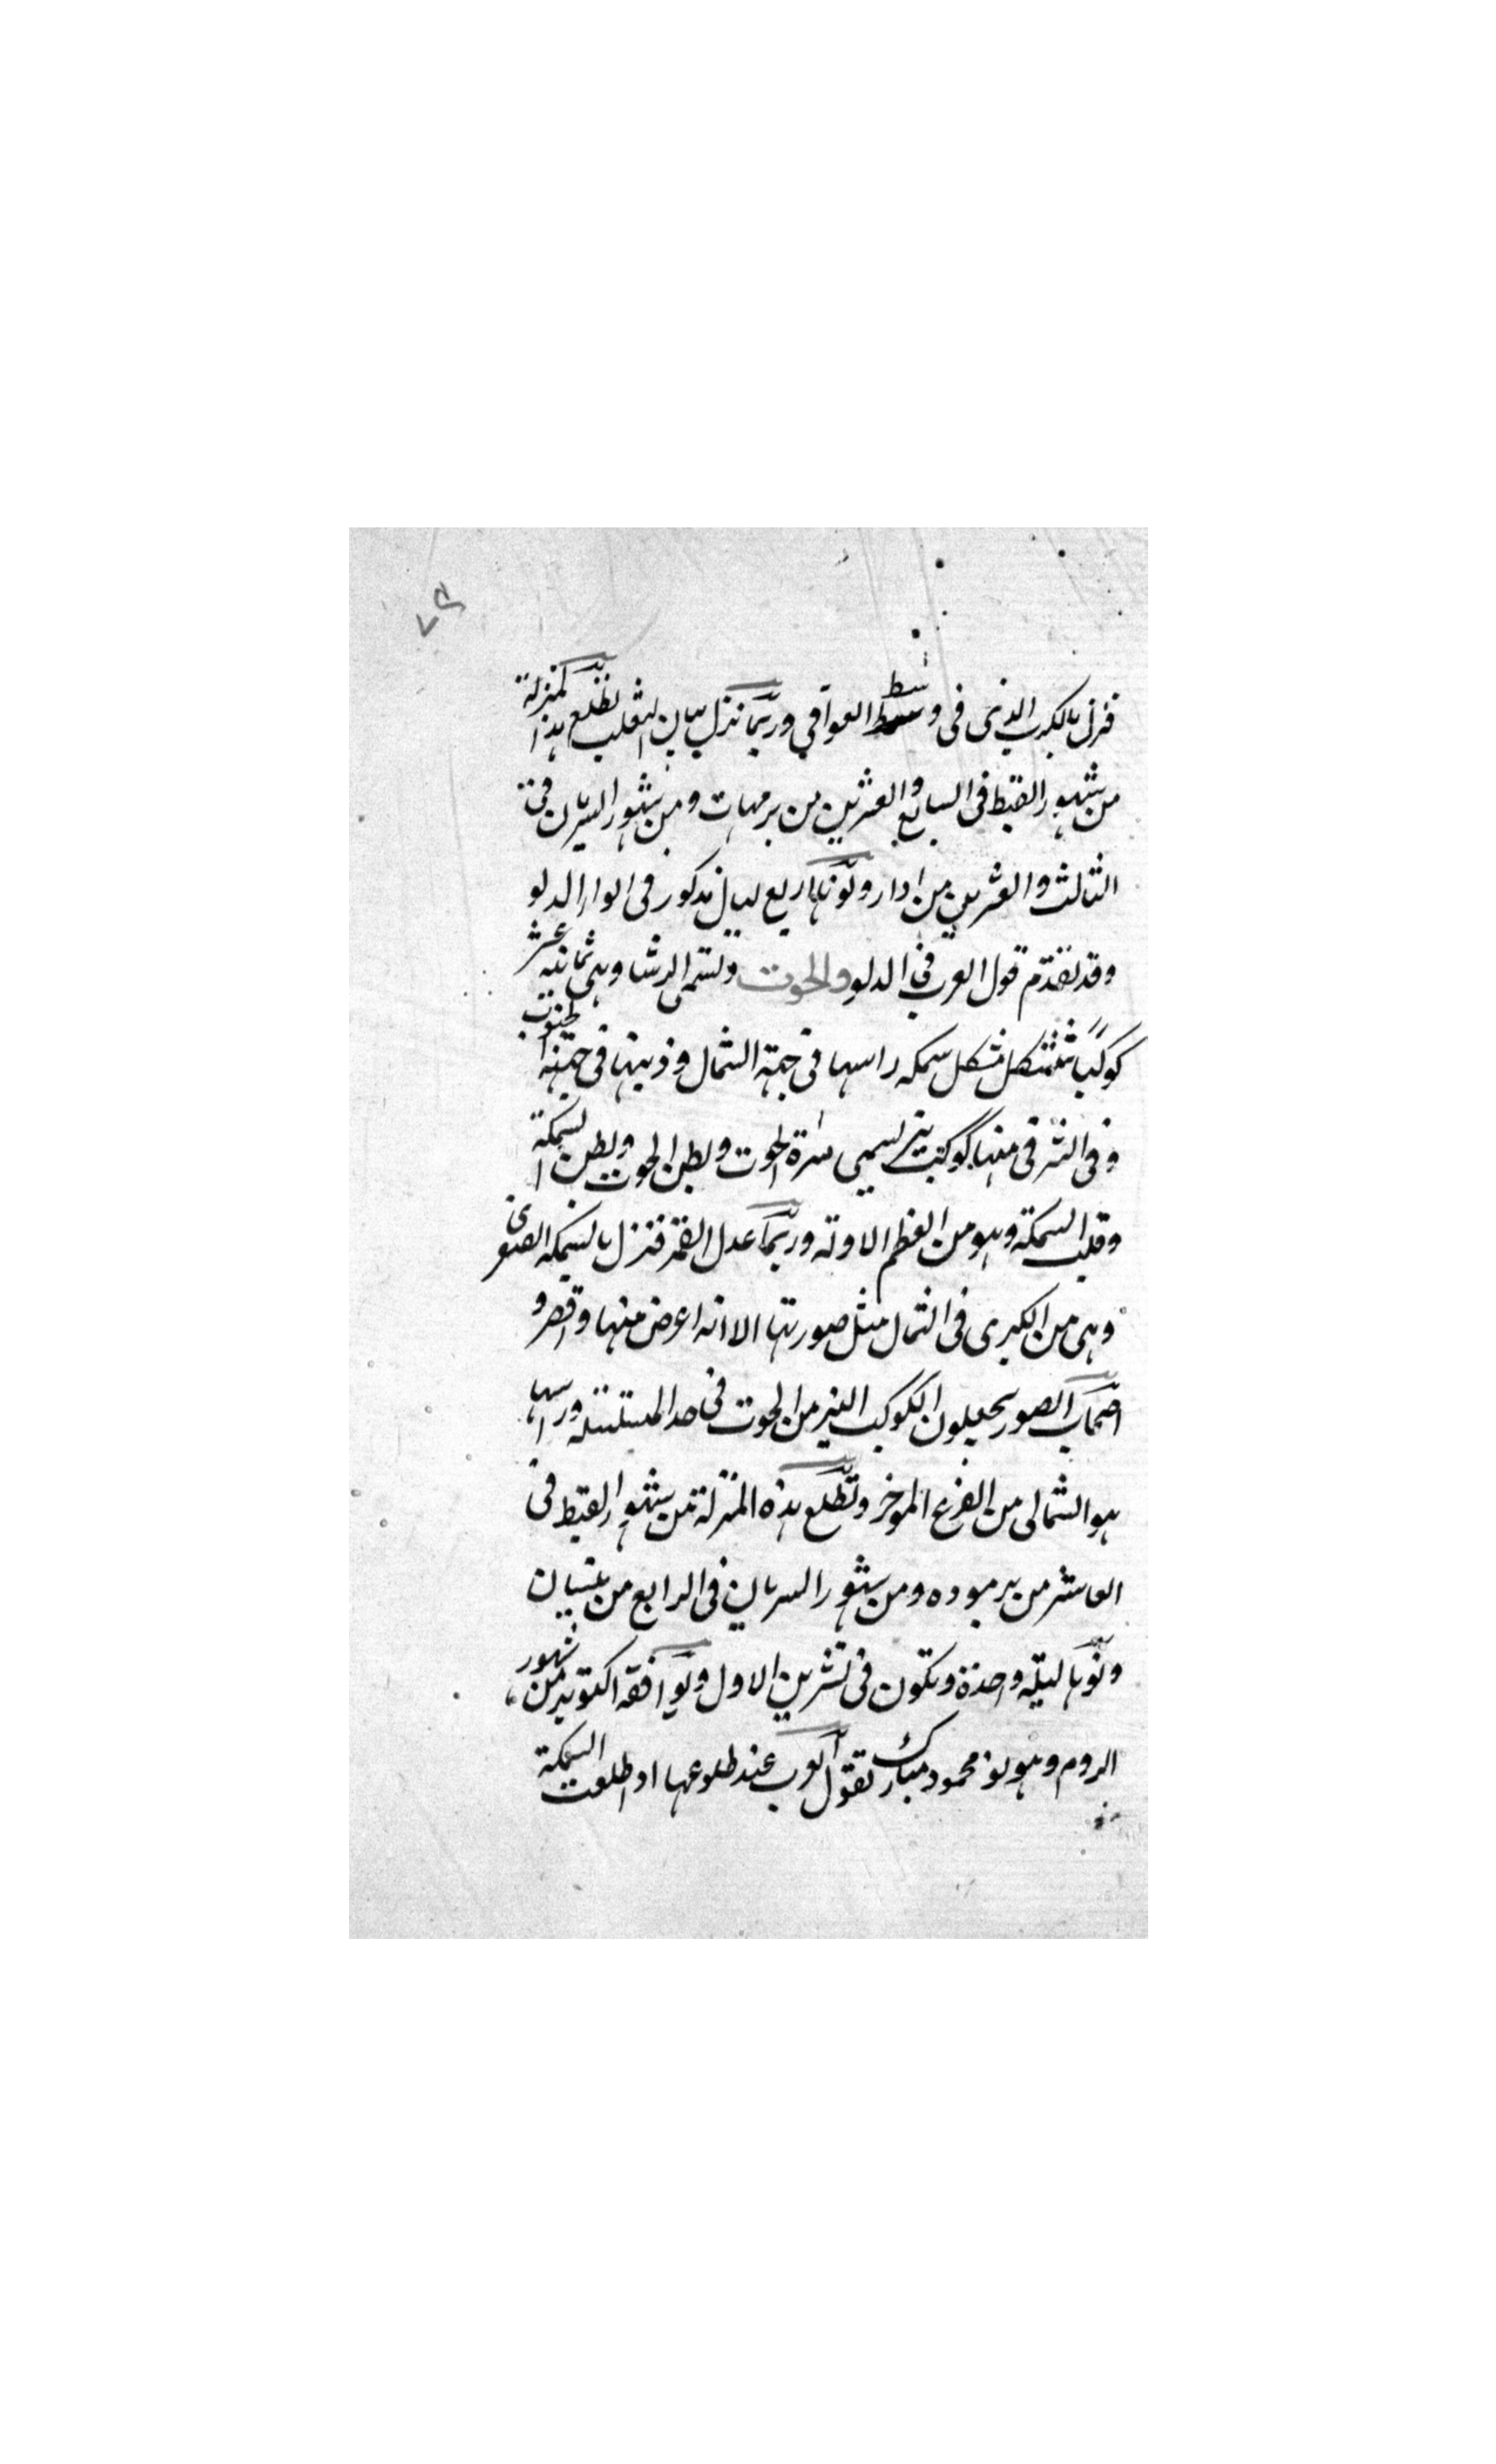 فنزل بالكرب الذى فى وسط العواقي وربما نزل ببيان الثعلب تطلع هذا المنزلة
من شهور القبط فى السابع والعشرين من برمهات ومن شهور السريان فى
الثالث والعشرين من ادار ونوئها اربع ليال مذكور فى انوار الدلو
وقد تقدم قول العرب فى الدلو والحوت وتسمى الرشا وهى ثمانية عشر
كوكبا تشكل شكل سمكه راسها فى جهة الشمال وذنبها فى جهة الجنوب
وفى الشرقى منها كوكب نير يسمى سرة الحوت وبطن الحوت وبطن السمكة
وقلب السمكة وهو من العظم الاوته وربما عدل القمر فنزل بالسمكه الصغرى
وهى من الكبرى فى الشمال مثل صورتها الا انه اعرض منها واقصر و
اصحاب الصور يجعلون الكوكب النير من الحوت فى حد المسلسله وراسها
هو الشمالى من الفرغ الموخر وتطلع هذه المنزلة من شهور القبط فى
العاشر من برموده ومن شهور السريان فى الرابع من نيسان
ونوها ليلة واحدة ويكون فى تشرين الاول ويوافقه اكتوبر من شهور
الروم وهو نو محمود مبارك تقول العرب عند طلوعها اذا طلعت السمكة